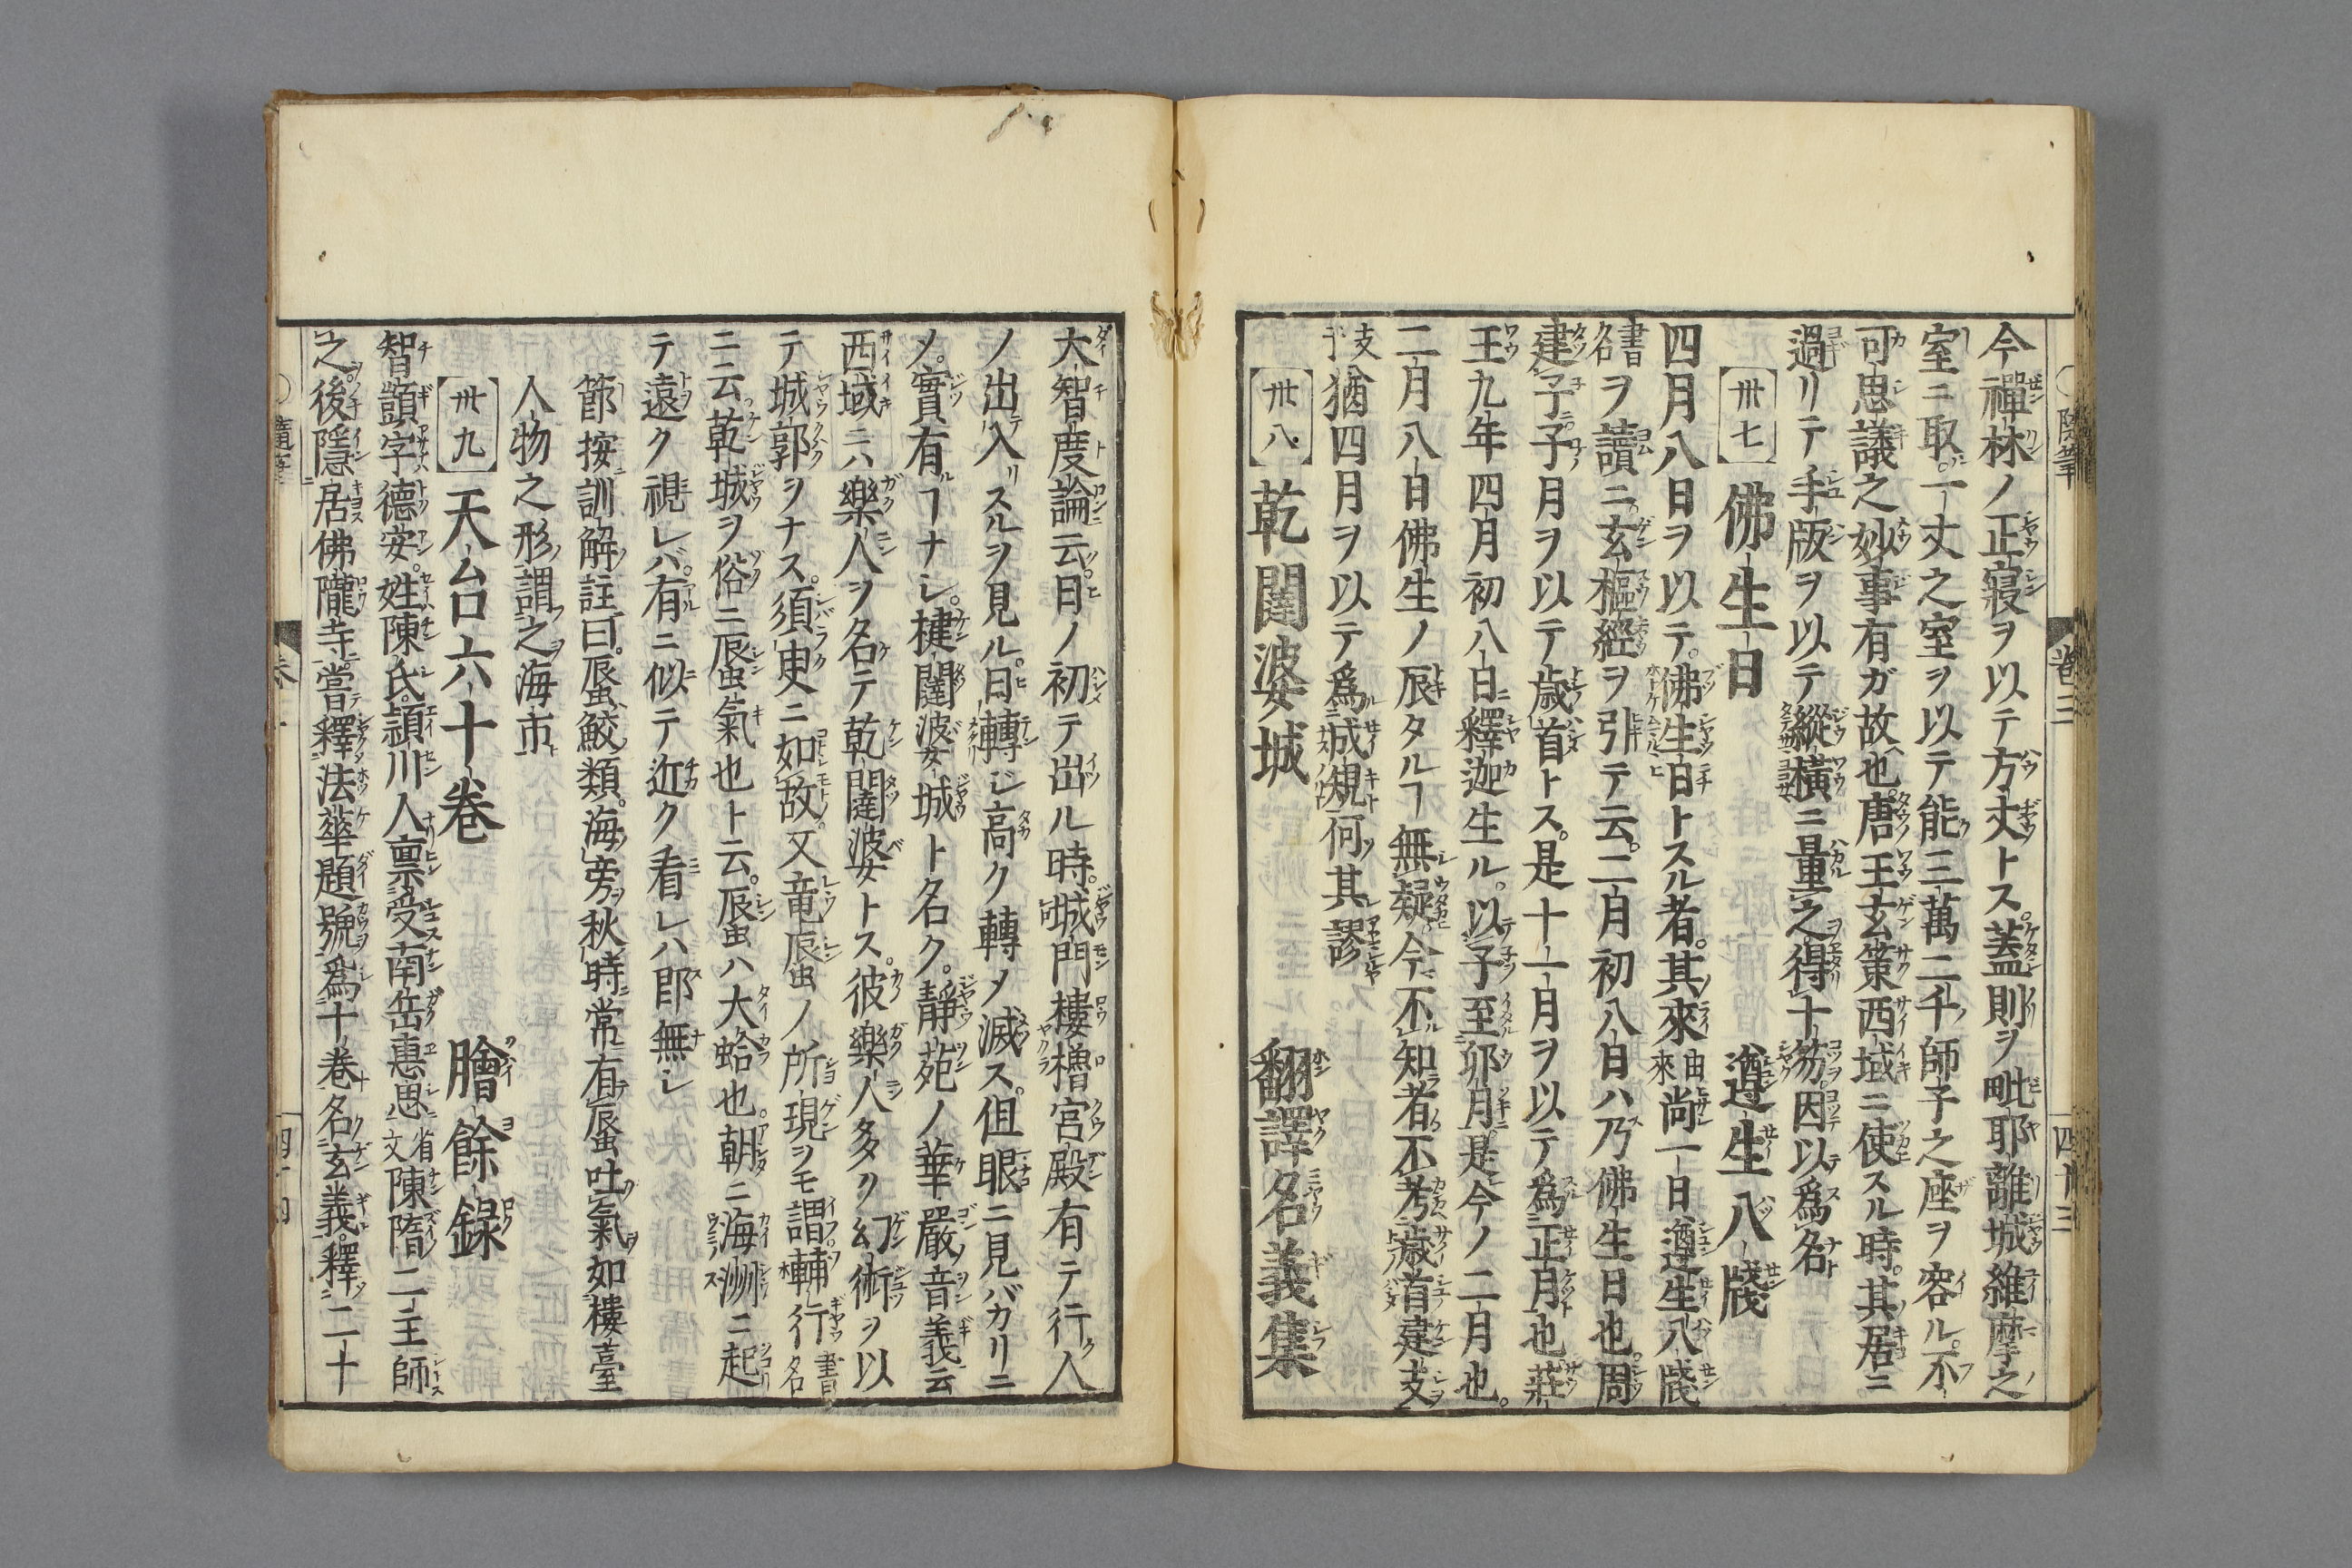 今禪林ノ正寢ヲ以テ方丈トス蓋則ヲ毗耶離城維摩之
室ニ取一丈之室ヲ以テ能三萬二千師子之座ヲ容ル不
可思議之妙事有ガ故也唐王玄策西域ニ使スル時其居ニ
過リテ手版ヲ以テ縱橫ニ量之得十笏因以爲名
卅七 佛生日 遵生八牋
四月八日ヲ以テ佛生日トスル者其來由來尚一日遵生八牋
書名ヲ讀ニ玄樞經ヲ引テ云二月初八日ハ乃佛生日也周
建子子月ヲ以テ歲首トス是十一月ヲ以テ爲正月也莊
王九年四月初八日釋迦生ル以子至卯月是今ノ二月也
二月八日佛生ノ辰タルヿ無疑今不知者不考歲首建支
支干猶四月ヲ以テ爲成規何其謬
卅八 乾闥婆城 翻譯名義集
大智度論云日ノ初テ出ル時城門樓櫓宮殿有テ行人
ノ出入スルヲ見ル日轉ジ高ク轉メ滅ス但眼ニ見バカリニ
メ實有ルヿナシ揵闥婆城ト名ク靜苑ノ華嚴音義云
西域ニハ樂人ヲ名テ乾闥婆トス彼樂人多ク幻術ヲ以
テ城郭ヲナス須臾ニ如故又竜蜃ノ所現ヲモ謂輔行書名
ニ云乾城ヲ俗ニ蜃氣也ト云蜃ハ大蛤也朝ニ海洲ニ起
テ遠ク視レバ有ニ似テ近ク看レハ即無シ
節按訓解註曰蜃蛟類海旁秋時常有蜃吐氣如樓臺
人物之形謂之海市
卅九 天台六十卷 膾餘錄
智顗字德安姓陳氏頴川人禀受南岳惠思省文陳隋二主師
之後隱居佛隴寺嘗釋法華題號爲十卷名玄義釋二十